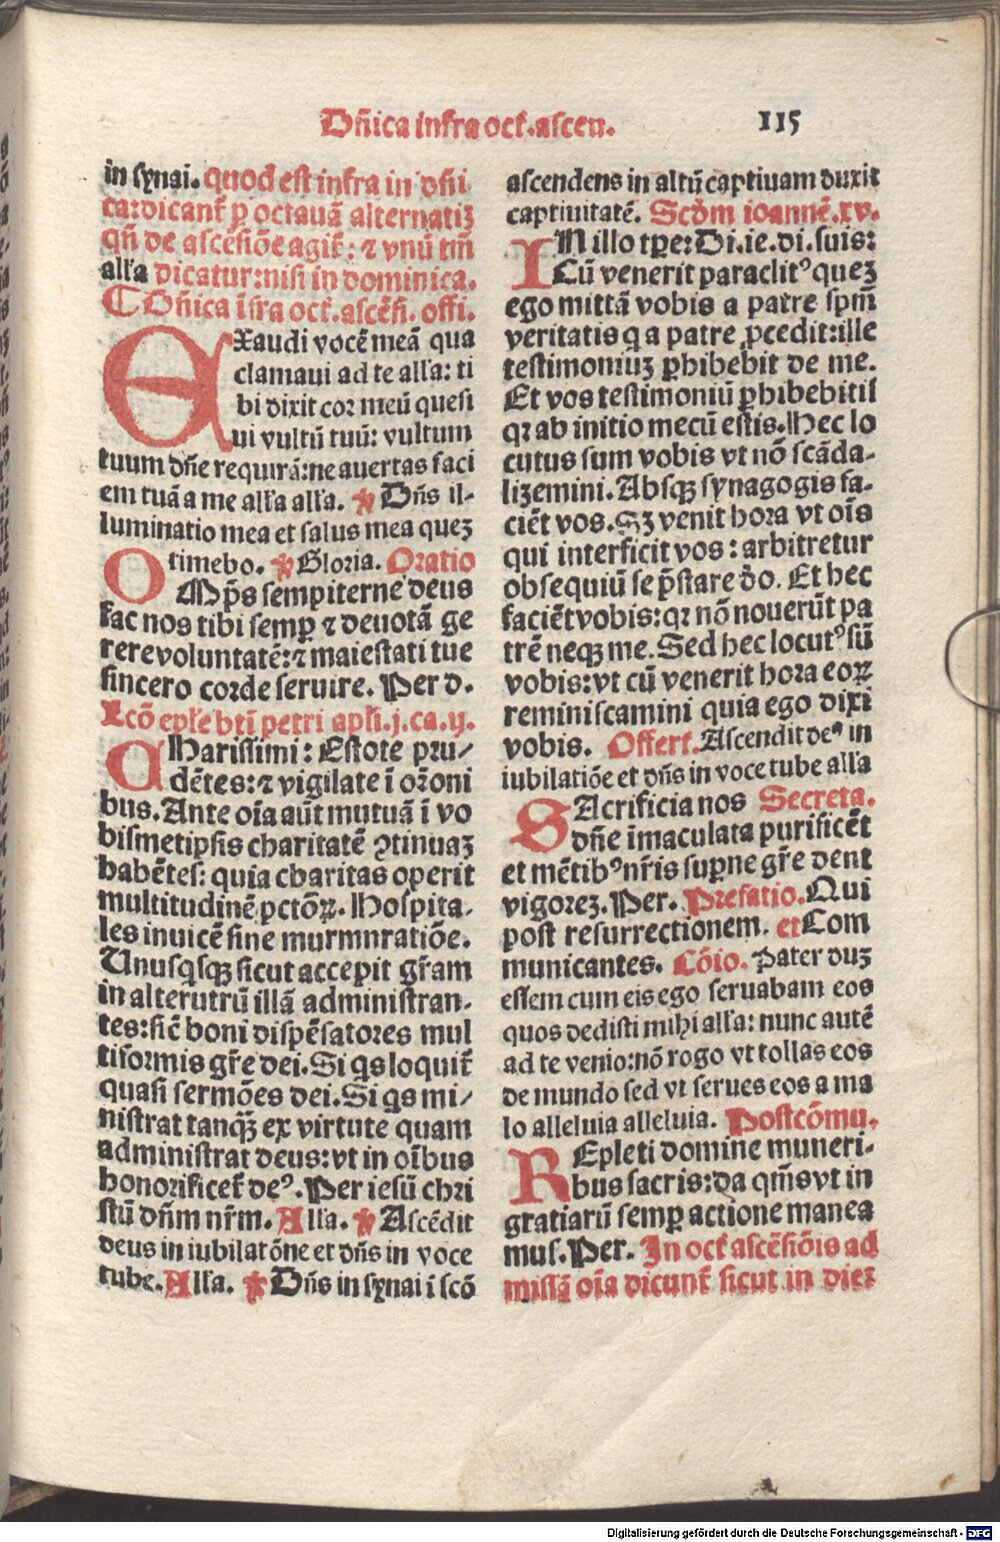 Dñica infra oct̃.ascen. 115
in synai. quod est infra in dñi
ca:dicant̃ p octauã alternatiʒ
qñ de ascẽsiõe agit̃: ⁊ vnũ tm̃
alľa dicatur:nisi in dominica.
¶ Dñica ĩfra oct̃.ascẽsi. offi.
EXaudi vocẽ meã qua
clamaui ad te alľa: ti
bi dixit cor meũ quesi
ui vultũ tuũ: vultum
tuum dñe requirã:ne auertas faci
em tuã a me alľa alľa. ps Dñs il-
luminatio mea et salus mea queʒ
timebo. ps Gloria. Oratio
OMp̃s sempiterne deus
fac nos tibi semp ⁊ deuotã ge
rere voluntatẽ:⁊ maiestati tue
sincero corde seruire. Per d.
Lcõ epľe bt̃i petri apľi.j.ca.ij.
CHarissimi: Estote pru/
dẽtes:⁊ vigilate ĩ orõni
bus. Ante oĩa aũt mutuã ĩ vo
bismetipsis charitatẽ ꝯtinuaʒ
habẽtes: quia charitas operit
multitudinẽ pctõꝝ. Hospita-
les inuicẽ sine murmnratiõe.
Unusqsqʒ sicut accepit gr̃am
in alterutrũ illã administran-
tes:sic̃ boni dispẽsatores mul
tiformis gr̃e dei. Si qs loquit̃
quasi sermões dei. Si qs mi/
nistrat tanqʒ̃ ex virtute quam
administrat deus:vt in oĩbus
honorificet̃ deꝰ. Per iesũ chri
stũ dñm nr̃m. Alľa. ps Ascẽdit
deus in iubilatõne et dñs in voce
tube. Alľa. ps Dñs in synai ĩ scõ
ascendens in altũ captiuam duxit
captiuitatẽ. Scd̃m ioannẽ.xv.
IN illo tpe: Di.ie.di.suis:
Cũ venerit paraclitꝰ queʒ
ego mittã vobis a patre spm̃
veritatis q a patre ꝓcedit:ille
testimoniuʒ ꝑhibebit de me.
Et vos testimoniũ ꝑhibebitil
qꝛ ab initio mecũ estis. Hec lo
cutus sum vobis vt nõ scãda-
lizemini. Absqʒ synagogis fa-
ciẽt vos. Sʒ venit hora vt oĩs
qui interficit vos: arbitretur
obsequiũ se p̃stare d̃o. Et hec
faciẽt vobis:qꝛ nõ nouerũt pa
trẽ neqʒ me. Sed hec locutꝰ sũ
vobis:vt cũ venerit hora eoꝝ
reminiscamini quia ego dixi
vobis. Offert̃. Ascendit deꝰ in
iubilatiõe et dñs in voce tube alľa
SAcrificia nos Secreta.
dñe ĩmaculata purificẽt
et mẽtibꝰ nr̃is supne gr̃e dent
vigoreʒ. Per. Prefatio. Qui
post resurrectionem. et Com
municantes. Cõio. Pater duʒ
essem cum eis ego seruabam eos
quos dedisti mihi alľa: nunc autẽ
ad te venio:nõ rogo vt tollas eos
de mundo sed vt serues eos a ma
lo alleluia alleluia. Postcõmu.
REpleti domine muneri-
bus sacris:da qm̃s vt in
gratiarũ semp actione manea
mus. Per. In oct̃ ascẽsiõis ad
missã oĩa dicunt̃ sicut in dieʒ
Digitalisierung gefördert durch die Deutsche Forschungsgemeinschaft - DFG